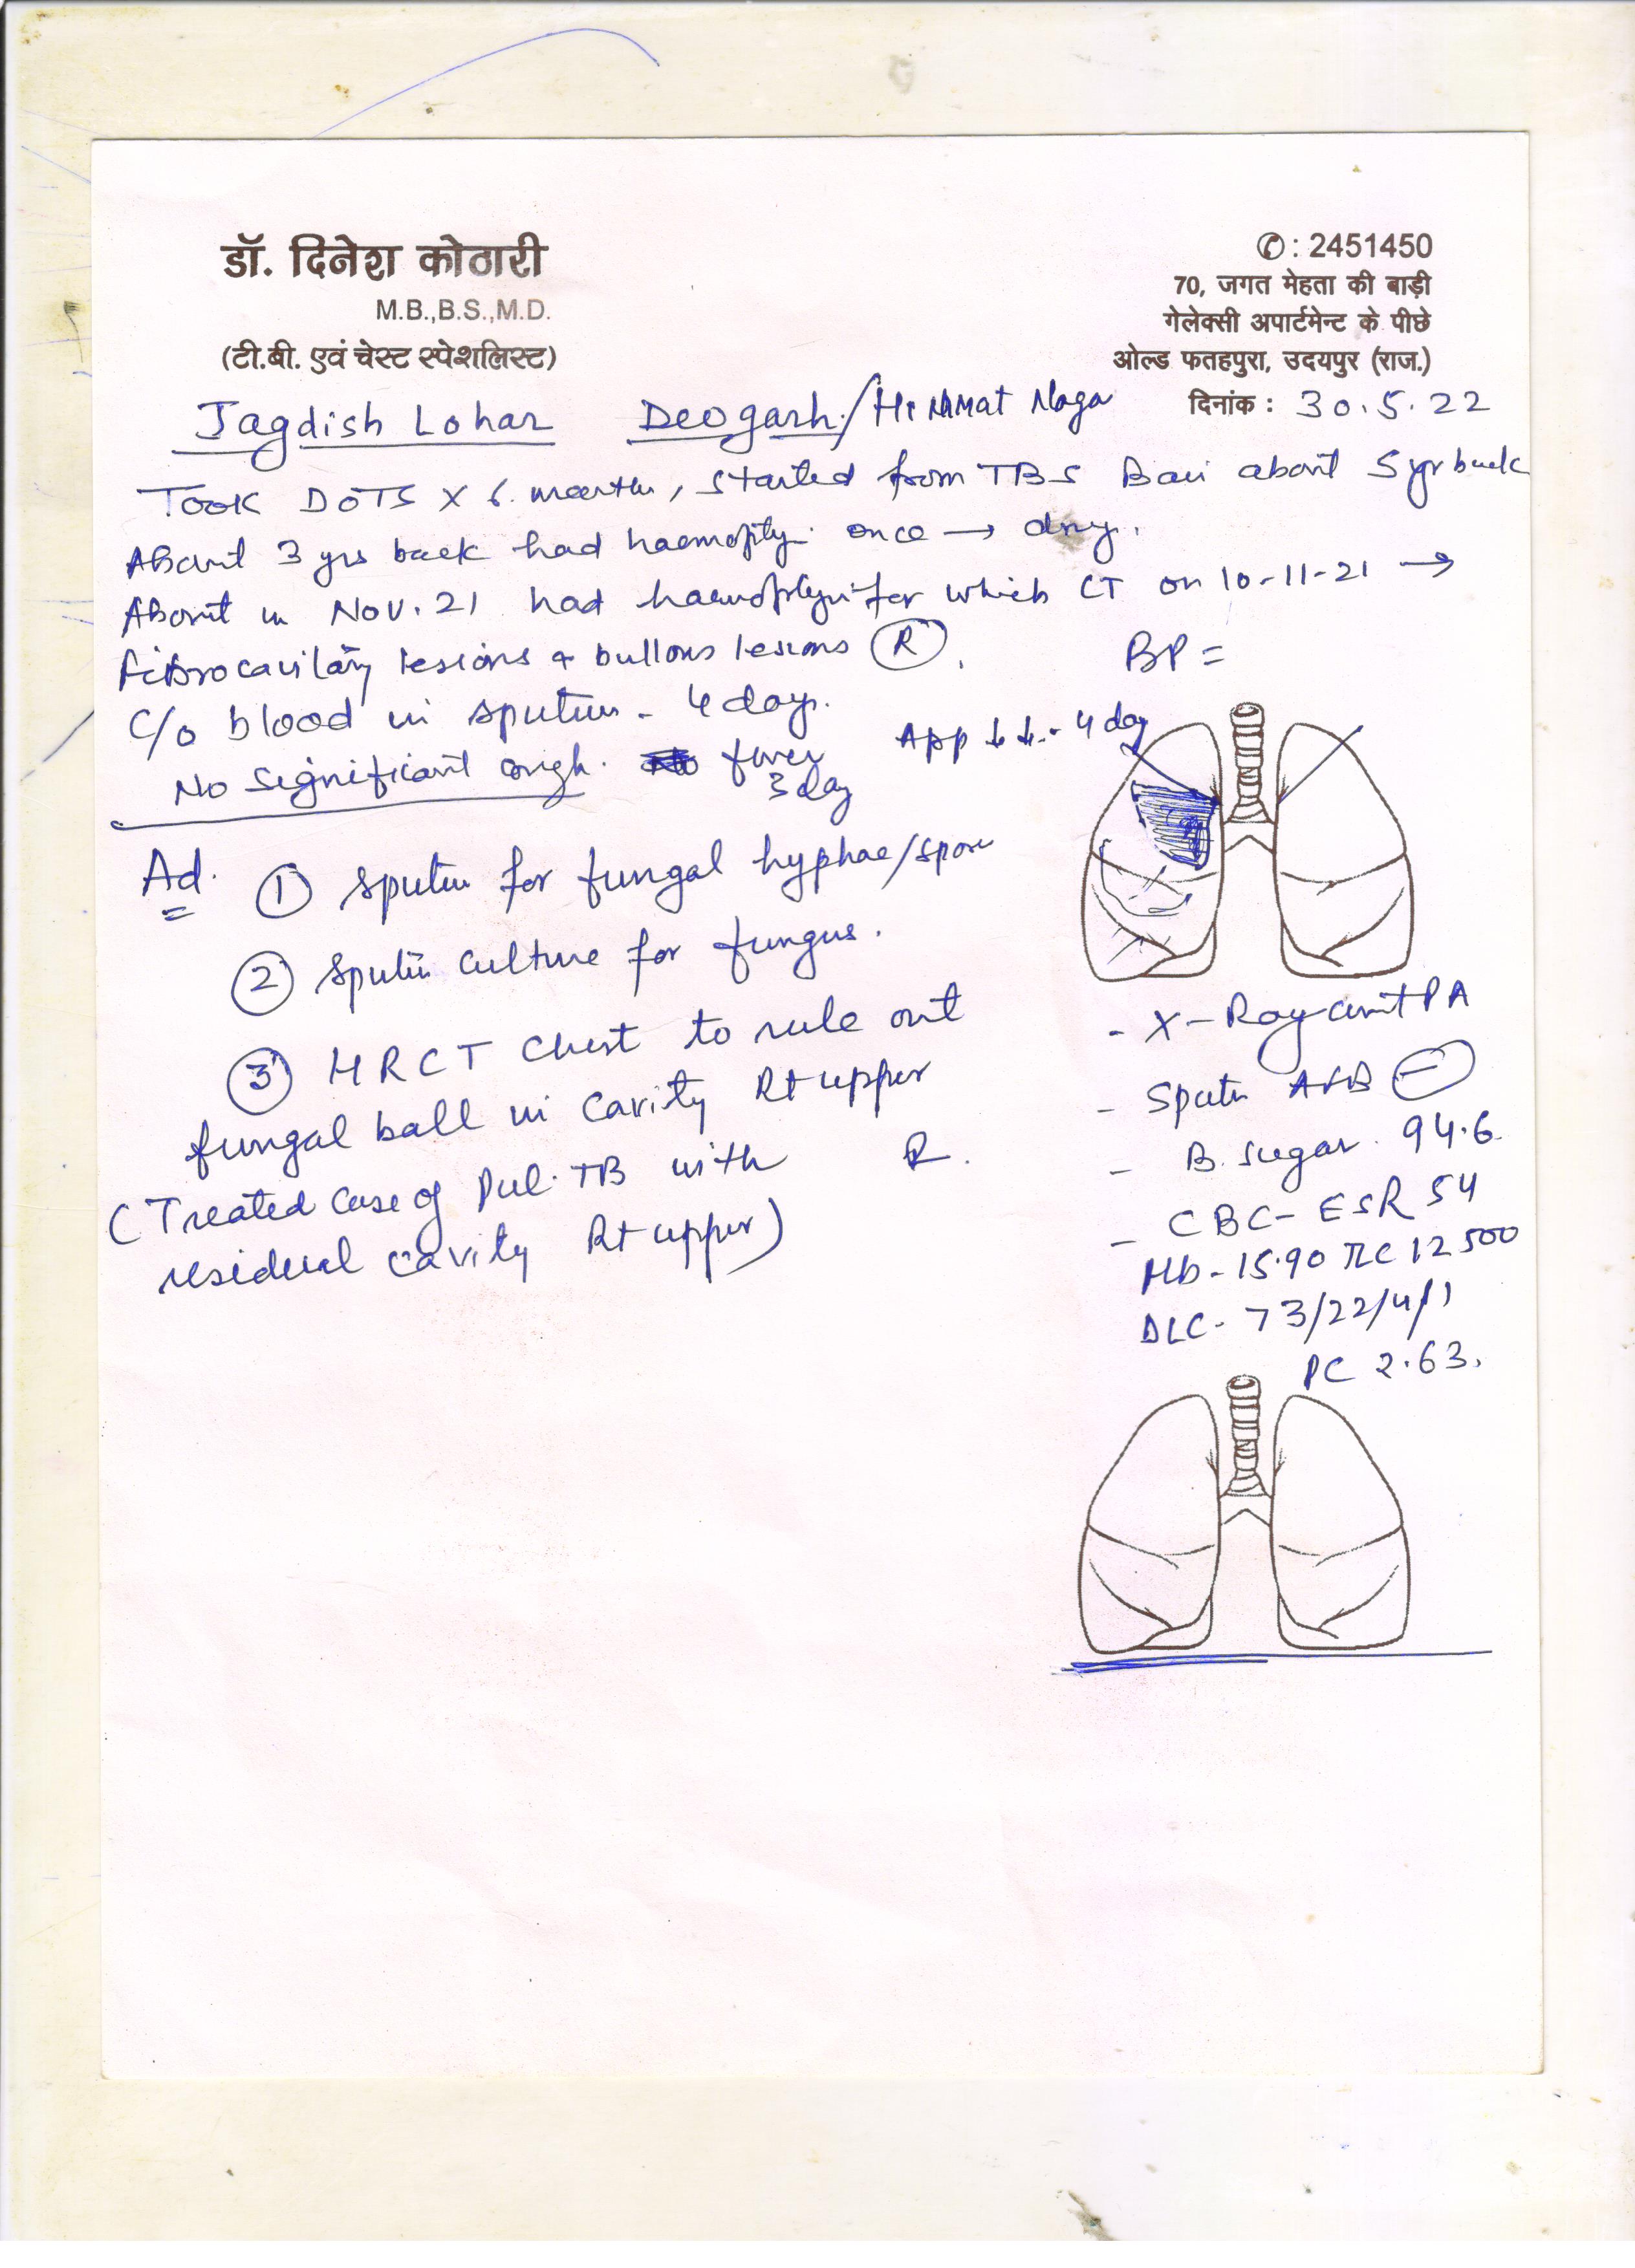 डॉ. दिनेश कोठारी
M.B.,B.S.,M.D.
(टी.बी. एवं चेस्ट स्पेशलिस्ट)
✆: 2451450
70, जगत मेहता की बाड़ी
गेलेक्सी अपार्टमेन्ट के पीछे
ओल्ड फतहपुरा, उदयपुर (राज.)
दिनांक : 30.5.22
Jagdish Lohar Deogarh/Himmat Naga
Took DOTS x 6 months, started from TBS Bari about 5 yr back
About 3 yrs back had haemopty once → dry.
About in Nov. 21 had haemoptysis for which CT on 10-11-21 →
Fibrocavitary lesions & bullous lesions (R).
BP =
C/o blood in sputum - 4 days.
App ↓↓ - 4 day
No significant cough. fever
3 day
Ad.
① Sputum for fungal hyphae/spore
② Sputum culture for fungus.
③ HRCT Chest to rule out
fungal ball in cavity Rt upper
(Treated case of Pul. TB with
residual cavity Rt upper)
R.
- X-Ray chest PA
- Sputum AFB (-)
- B. Sugar. 94.6
- CBC- ESR 54
Hb - 15.90 TLC 12500
DLC - 73/22/4/1
PC 2.63.